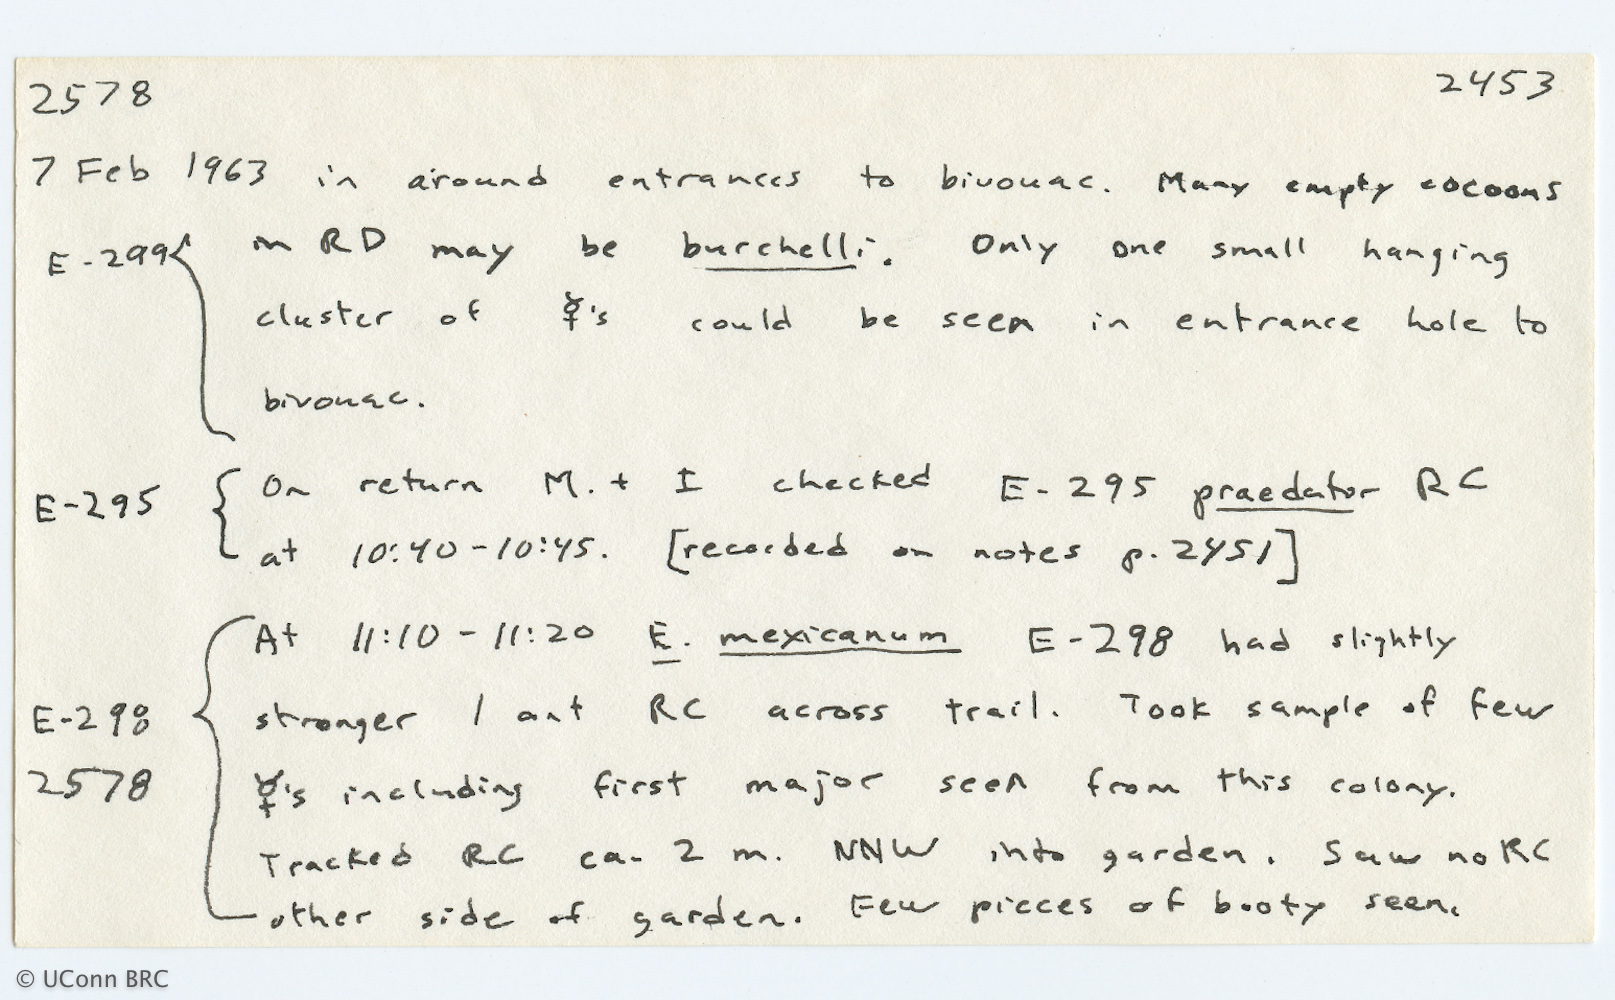 2578 2453
7 Feb 1963 in around entrances to bivouac. Many empty cocoons
E-299 in RD may be burchelli. Only one small hanging
cluster of ☿'s could be seen in entrance hole to
bivouac.
E-295 On return M. + I checked E-295 praedator RC
at 10:40-10:45. [recorded on notes p. 2451]
At 11:10 - 11:20 E. mexicanum E-298 had slightly
E-298 stronger 1 ant RC across trail. Took sample of few
2578 ☿'s including first major seen from this colony.
Tracked RC ca. 2 m. NNW into garden. Saw no RC
other side of garden. Few pieces of booty seen.
© UConn BRC